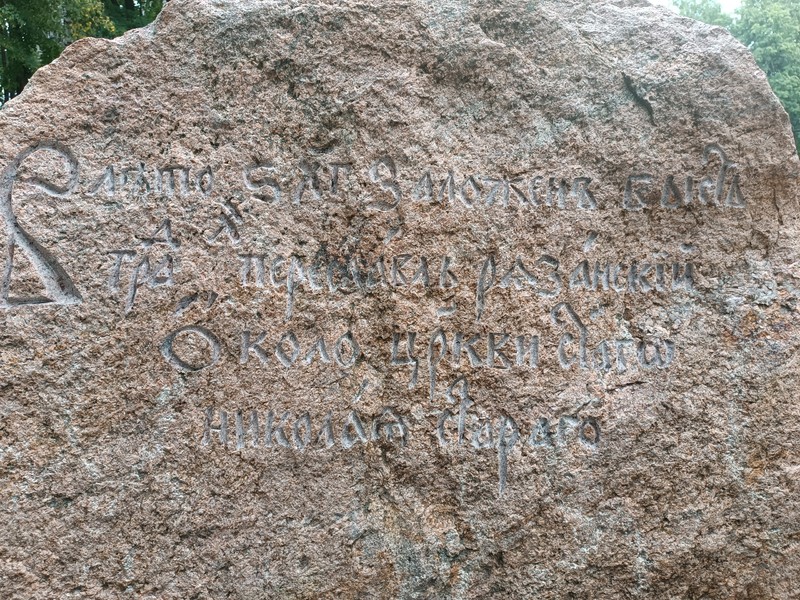 В лѣто ѕх҃г Заложенъ бысть
градъ переѧславль рѧзанскїй
Около цр҃кви ст҃агѡ
николаѧ стараго